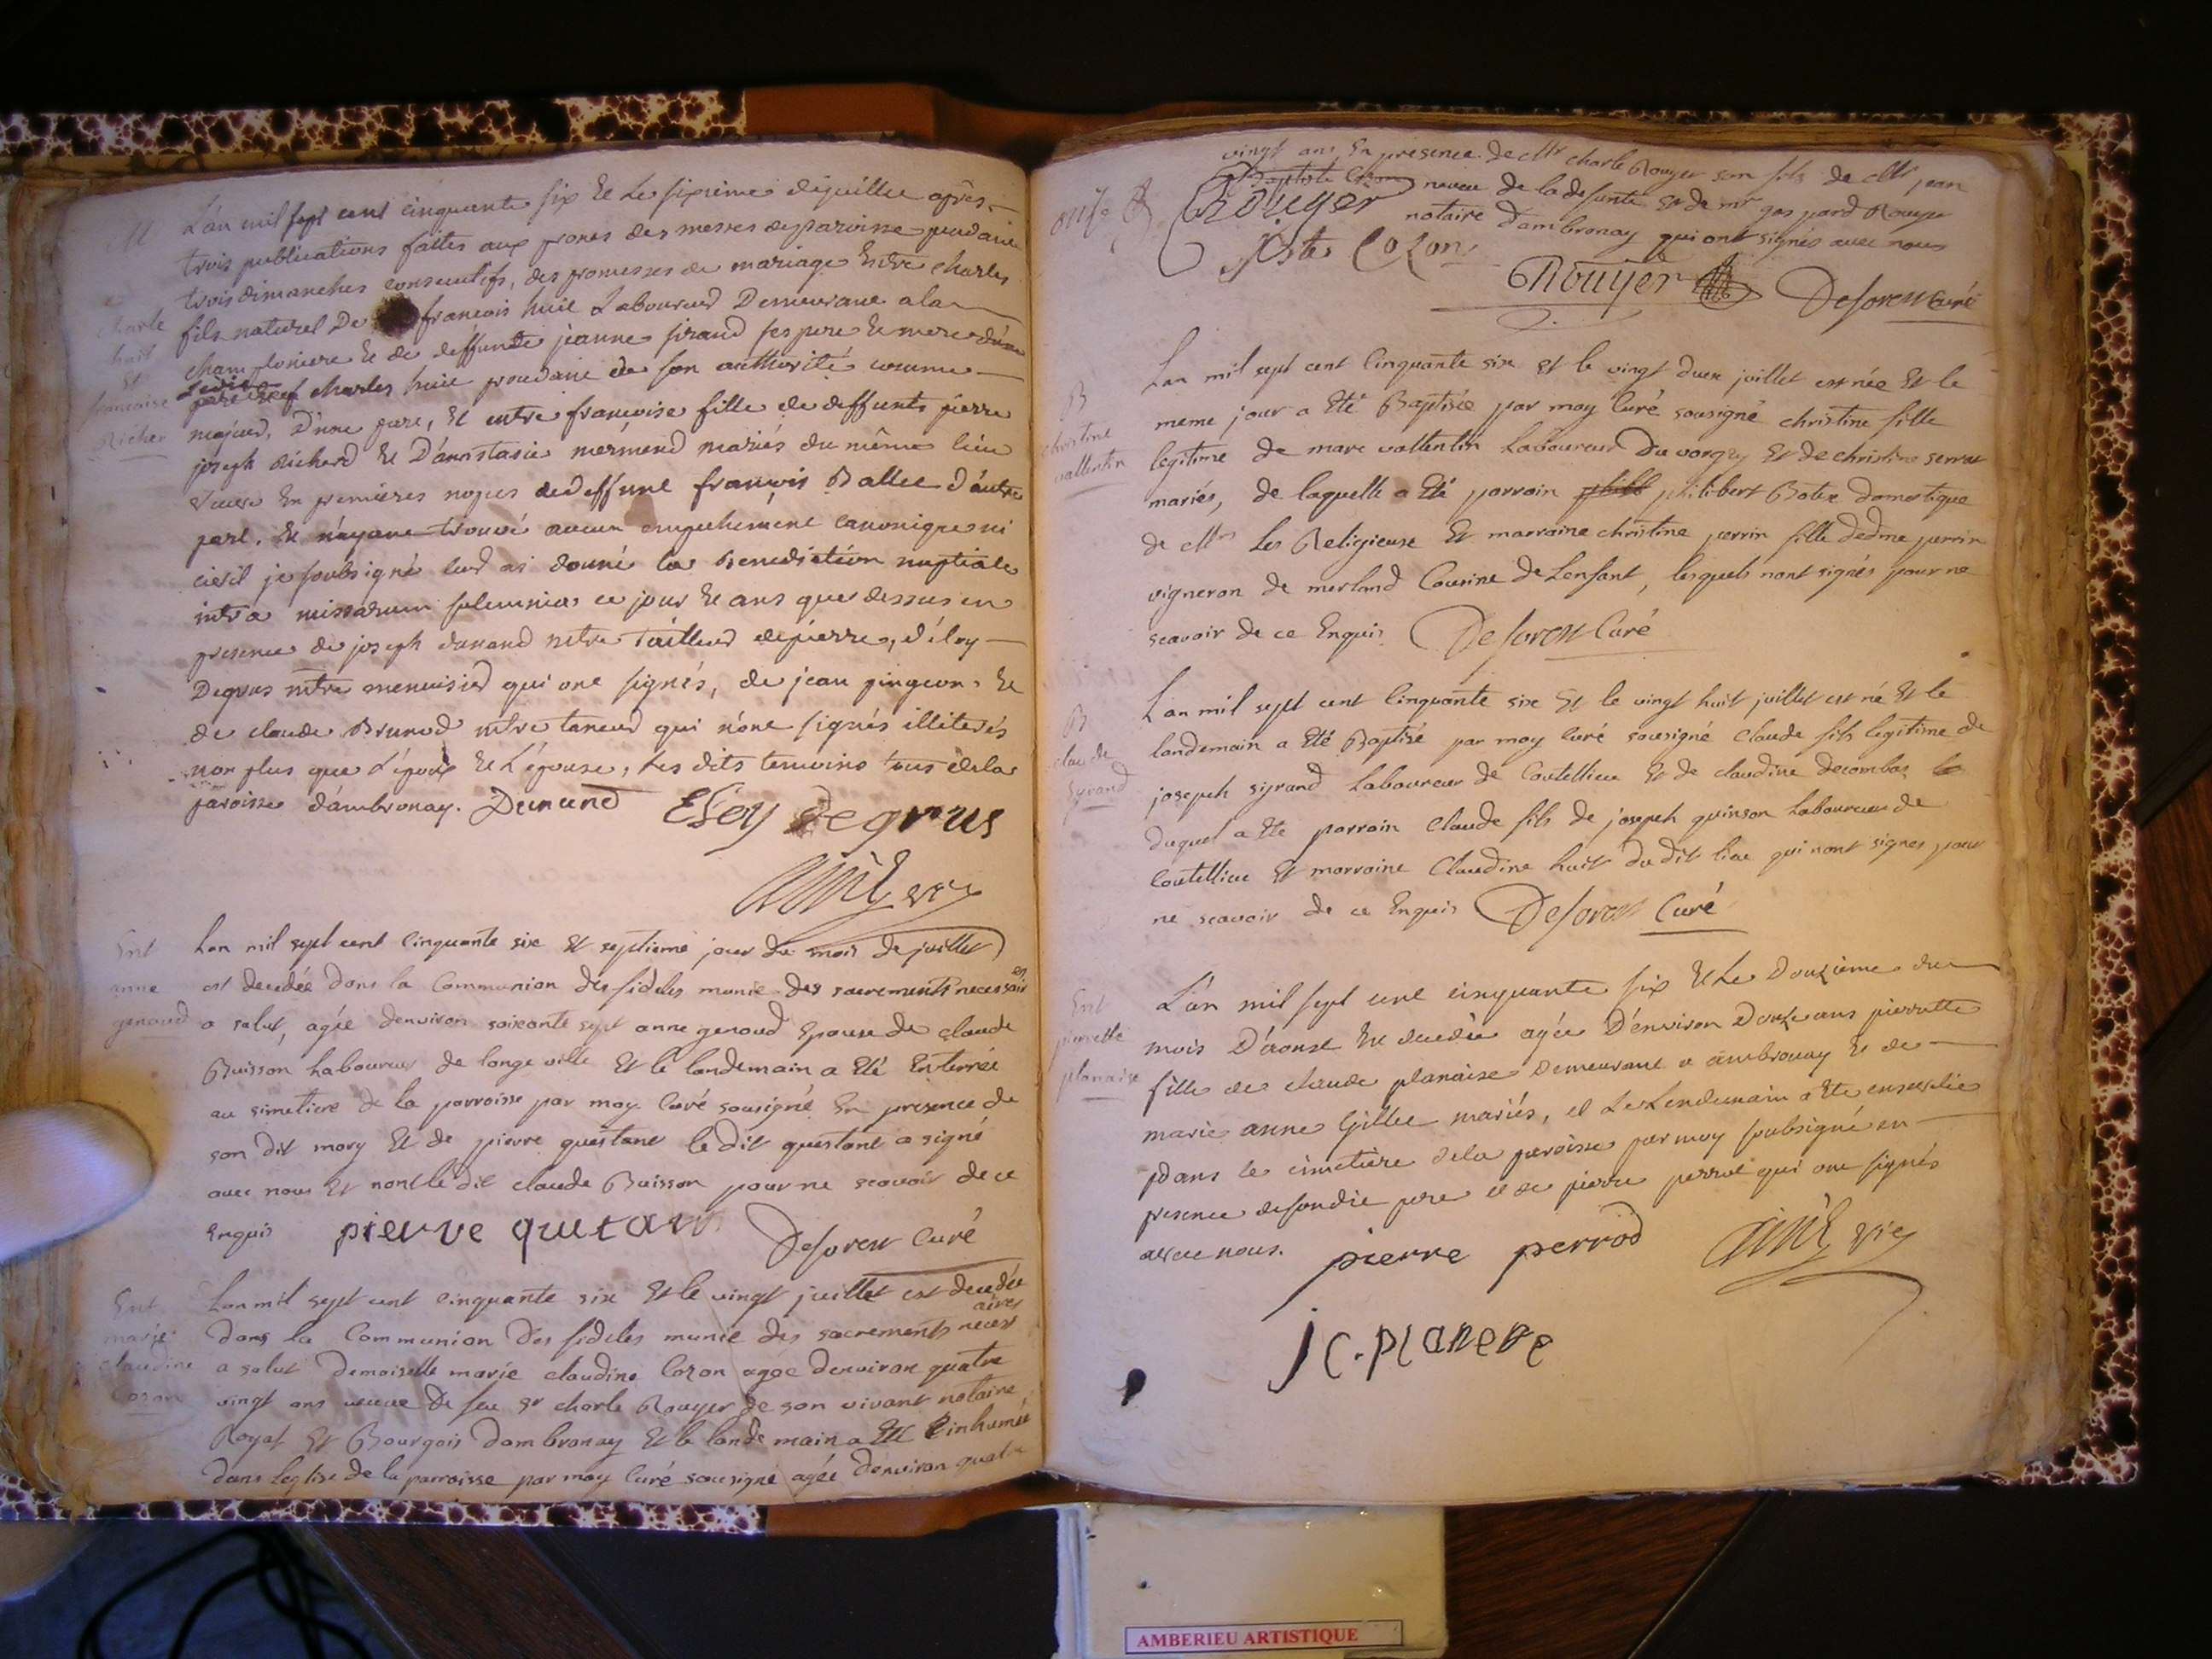 M
Charle
huit
Et
francoise
Richer
L'an mil sept cent cinquante six et le sixieme de juillet après
trois publications faites aux prones des messes de paroisse pendant
trois dimanches consecutifs, des promesses de mariage Entre charles
fils naturel De françois huit Laboureur Demeurant a la
et de deffunte jeanne sirand ses pere et mere
charles huit procedant de son authorité comme
majeur, D'une part, et entre francoise fille de deffunts pierre
joseph Richerd et D'annastasie mermend mariés du même lieu
veuve En premieres nopces de deffunt françois Ballet d'autre
part. Et n'ayant trouvé aucun empechement canonique ni
civil je soubsigné leur ai donné la Benediction nuptiale
intra missarum solemnia ce jour et ans que dessus en
presence de joseph dunand mtre tailleur de pierre, d'éloy
Degrus mtre menuisier qui ont signés, de jean pingeon, et
de claude Brunod mtre taneur qui n'ont signés illiterés
non plus que l'époux et l'épouse, les dits temoins tous de la
paroisse d'ambronay. Dunand Eloy Degrus
Ent
anne
genoud
Lan mil sept cent Cinquante six et septieme jour du mois de juillet
est decedée dans la Communion des fideles munie des sacrements necessaires
a salut, agée denviron soixante sept anne genoud Epouse de claude
Buisson Laboureur de longe ville Et le landemain a Eté Enterrée
au simetiere de la parroisse par moy Curé sousigné En presence de
son dit mary Et de pierre questant le dit questant a signé
avec nous Et non le dit claude Buisson pour ne scavoir de ce
Enquis pierre qutan Desoren Curé
Ent
marie
claudine
Cozon
Lan mil sept cent cinquante six Et le vingt juillet est decedée
dans la Communion des fideles munie des sacrements necessaires
a salut Demoiselle marie claudine Cozon agee denviron quatre
vingt ans veuve de feu Sr charle Rouyer de son vivant notaire
Royal Et Bourgois dambronay Et le landemain a Eté inhumée
dans leglise de la parroisse par moy Curé sousigné agée denviron quatre
vingt ans En presence de Mr charle Rouyer son fils de Mr jean
Baptiste Cozon neveu de la defunte Et de mr gaspard Rouyer
notaire dambronay qui ont signés avec nous
Rouyer
Cozon
Rouyer Desoren Curé
B
christine
vallentin
Lan mil sept cent Cinquante six Et le vingt deux juillet est née Et le
meme jour a Eté Baptisée par moy Curé sousigné christine fille
legitime de marc vallentin Laboureur Du vorgey Et de christine
mariés, de laquelle a Eté parrain philibert domestique
de Mrs Les Religieux Et marraine christine perrin fille dedme perrin
vigneron de merland Cousine de Lenfant, lesquels nont signés pour ne
scavoir de ce Enquis Desoren Curé
B
claude
Syrand
Lan mil sept cent Cinquante six Et le vingt huit juillet est né Et le
landemain a Eté Baptisé par moy Curé sousigné Claude fils legitime de
joseph sirand Laboureur de Coutellieu Et de claudine decombas
duquel a Ete parrain Claude fils de joseph quinson Laboureur de
Coutellieu Et marraine Claudine huit du dit lieu qui nont signes pour
ne scavoir de ce Enquis Desoren Curé
Ent
pierrette
planaise
L'an mil sept cent cinquante six et le Douzieme du
mois D'aoust est decedée agée D'environ Douze ans pierrette
fille de claude planaise Demeurant a ambronay et de
marie anne Gillet mariés, et le Lendemain a Ete ensevelie
dans le cimetiere de la paroisse par moy soubsigné en
presence de son dit pere et de pierre perrod qui ont signés
avec nous. pierre perrod
jc. planese
AMBERIEU ARTISTIQUE